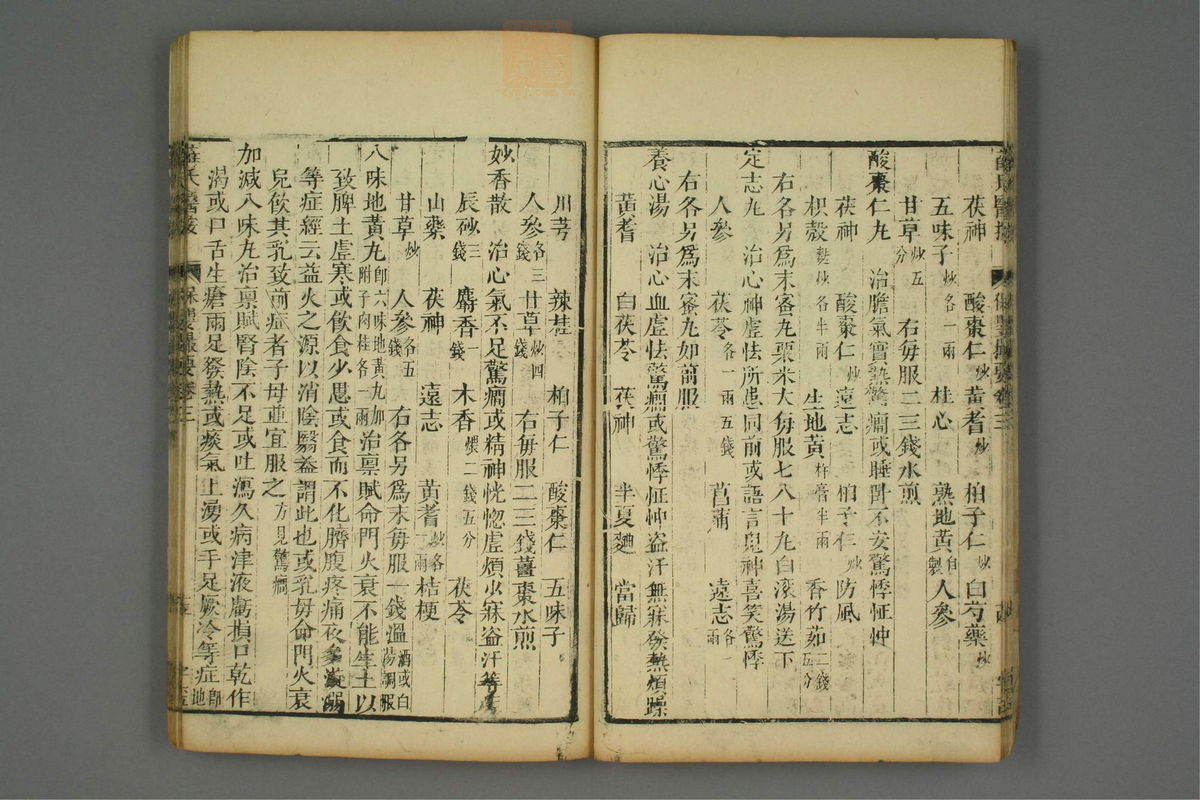 茯神 酸棗仁炒 黃耆炒 柏子仁炒 白芍藥炒
五味子炒各一兩 桂心 熟地黃自製 人參
甘草炒五分 右每服二三錢水煎
酸棗仁丸 治膽氣實熱驚癇或睡臥不安驚悸怔忡
茯神 酸棗仁炒 遠志 柏子仁炒 防風
枳殼麩炒各半兩 生地黃杵膏半兩 香竹茹二錢五分
右各另爲末蜜丸粟米大每服七八十丸白滾湯送下
定志丸 治心神虛怯所患同前或語言鬼神喜笑驚悸
人參 茯苓各一兩五錢 菖蒲 遠志各一兩
右各另爲末蜜丸如前服
養心湯 治心血虛怯驚癇或驚悸怔忡盜汗無寐發熱煩躁
黃耆 白茯苓 茯神 半夏麯 當歸
川芎 辣桂 柏子仁 酸棗仁 五味子
人參各三錢 甘草炒四錢 右每服二三錢薑棗水煎
妙香散 治心氣不足驚癇或精神恍惚虛煩少寐盜汗等
辰砂三錢 麝香一錢 木香煨二錢五分 茯苓
山藥 茯神 遠志 黃耆炒各一兩 桔梗
甘草炒 人參各五錢 右各另爲末每服一錢溫酒或白湯調服
八味地黃丸卽六味地黃丸加附子肉桂各一兩 治稟賦命門火衰不能生土以
致脾土虛寒或飲食少思或食而不化臍腹疼痛夜多漩溺
等症經云益火之源以消陰翳蓋謂此也或乳母命門火衰
兒飲其乳致前症者子母並宜服之方見驚癇
加減八味丸治稟賦腎陰不足或吐瀉久病津液虧損口乾作
渴或口舌生瘡兩足發熱或痰氣上湧或手足厥冷等症卽地
薛氏醫按 保嬰撮要卷三